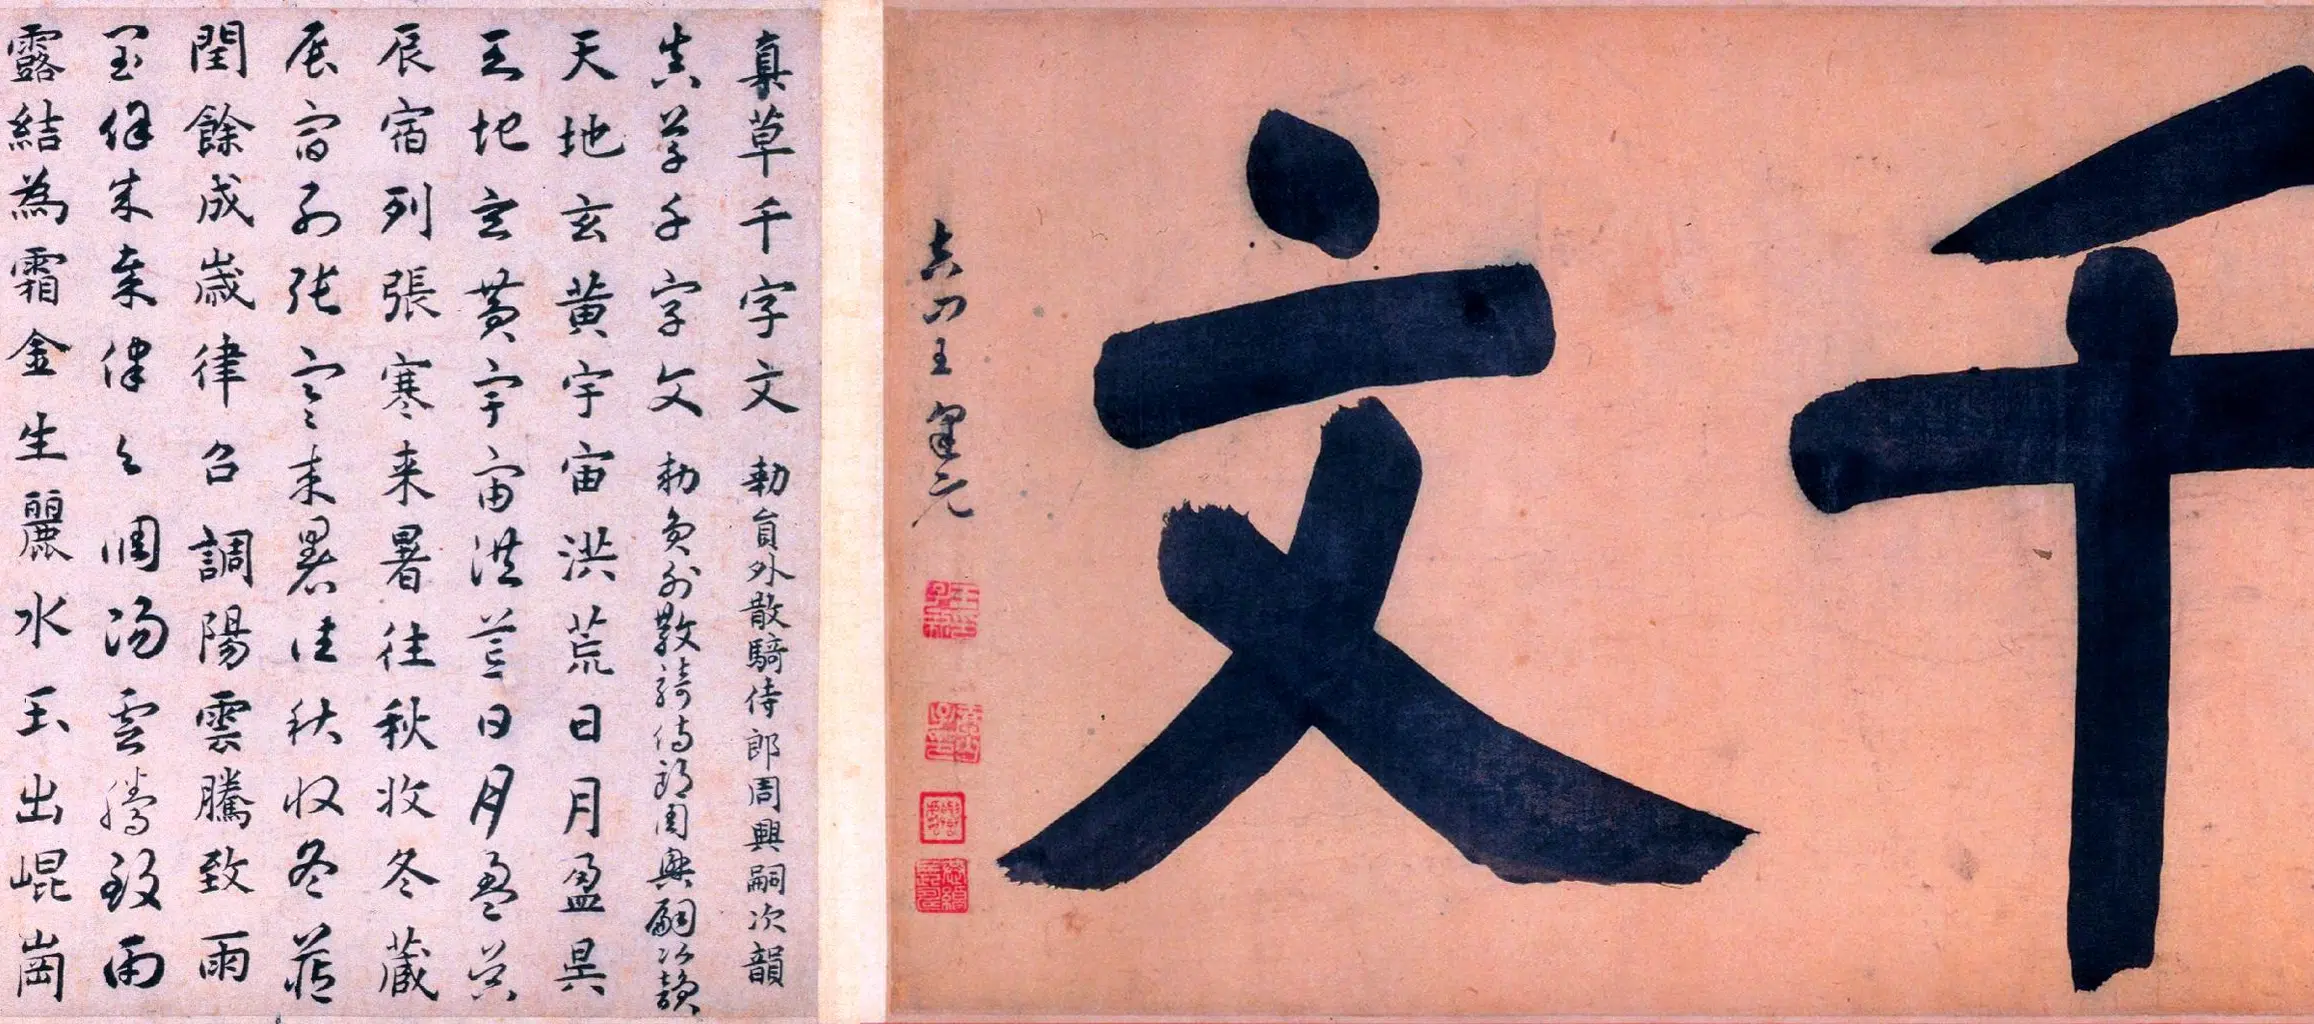 千文
吉山王逢元
王氏子新
真草千字文 勅員外散騎侍郎周興嗣次韻
真草千字文 勅員外散騎侍郎周興嗣次韻
天地玄黃宇宙洪荒日月盈昃
天地玄黃宇宙洪荒日月盈昃
辰宿列張寒来暑往秋收冬藏
辰宿列張寒来暑往秋收冬藏
閏餘成歲律召調陽雲騰致雨
閏餘成歲律召調陽雲騰致雨
露結為霜金生麗水玉出崐崗